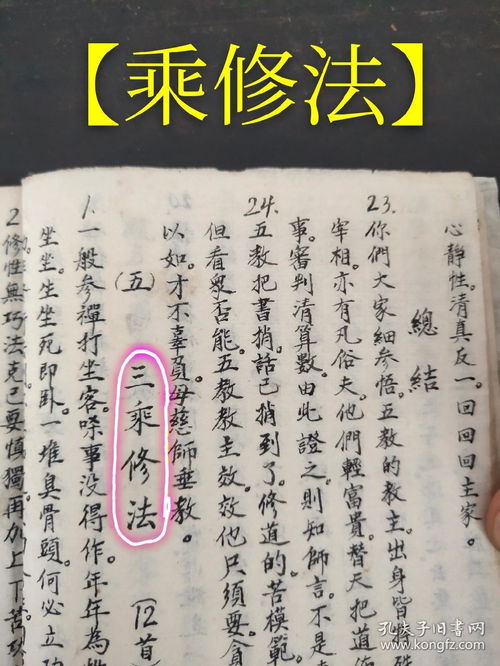 【乘修法】
心靜性。清真反一。回回回主家。
總結
23.你們大家細參悟。五教的教主出身皆
宰相。亦有凡俗夫。他們輕富貴。替天把道
事。審判清算數。由此證之。則知師言。不是
24.五教把書捎。話已捎到了。修道的。苦模範。
但看衆否能。五教教主效。效他只須要。
以如。才不辜負母慈師垂教。
(五) 三乘修法 (12首
1.一般參禪打坐客。嗏事没得作。年年為
坐坐。生坐死即卧。一堆臭骨頭。何必立
2修性無巧法。克己要慎獨。再加上下苦
孔夫子旧书网
www.kongfz.com